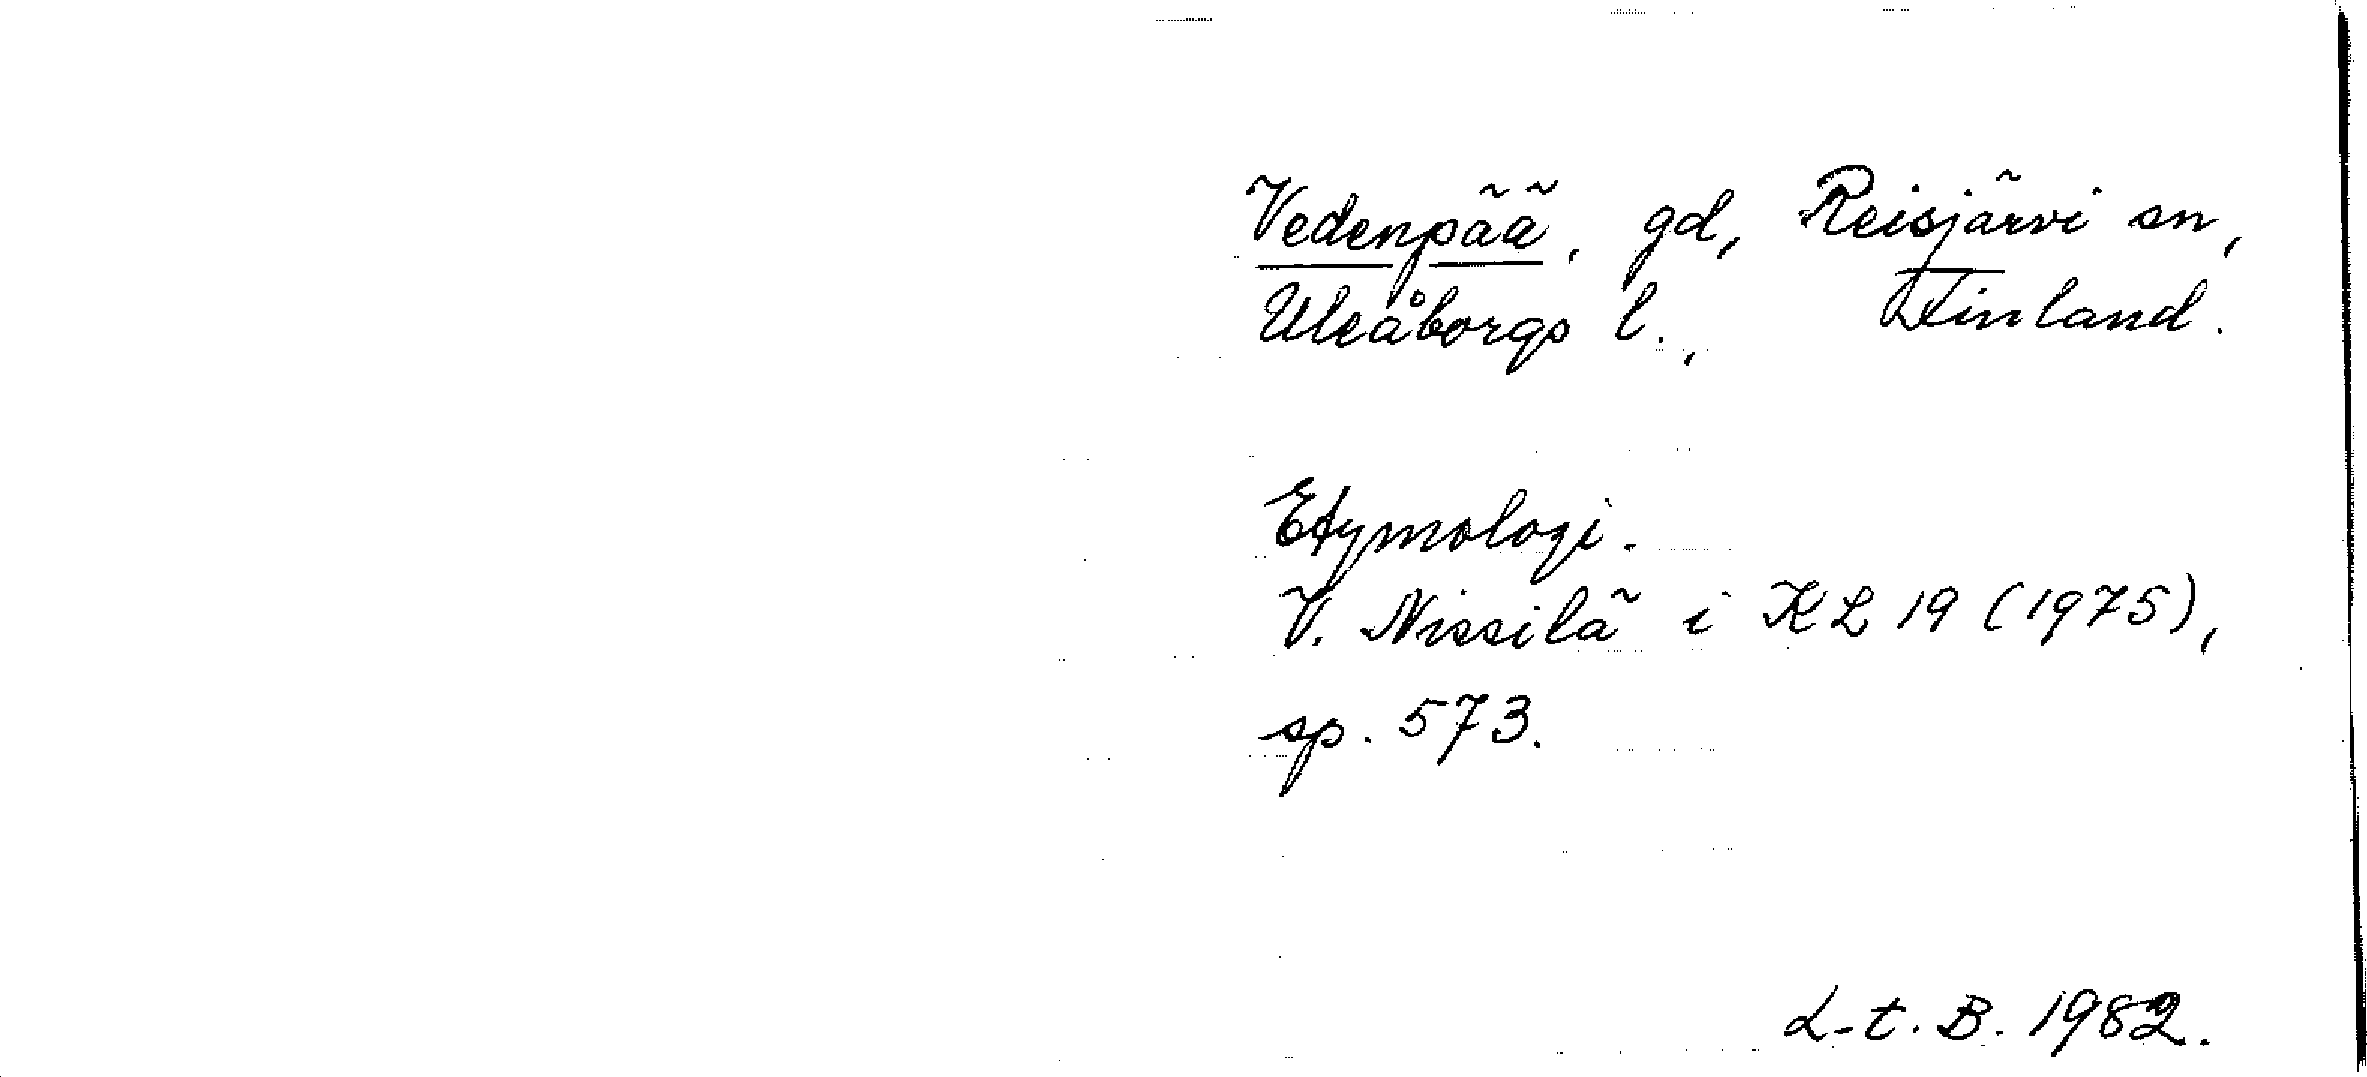 Vedenpää, gd, Reisjärvi sn,
Uleåborgs l., Finland.
Etymologi.
V. Nissilä i KL 19 (1975),
sp. 573.
L-t. B. 1982.